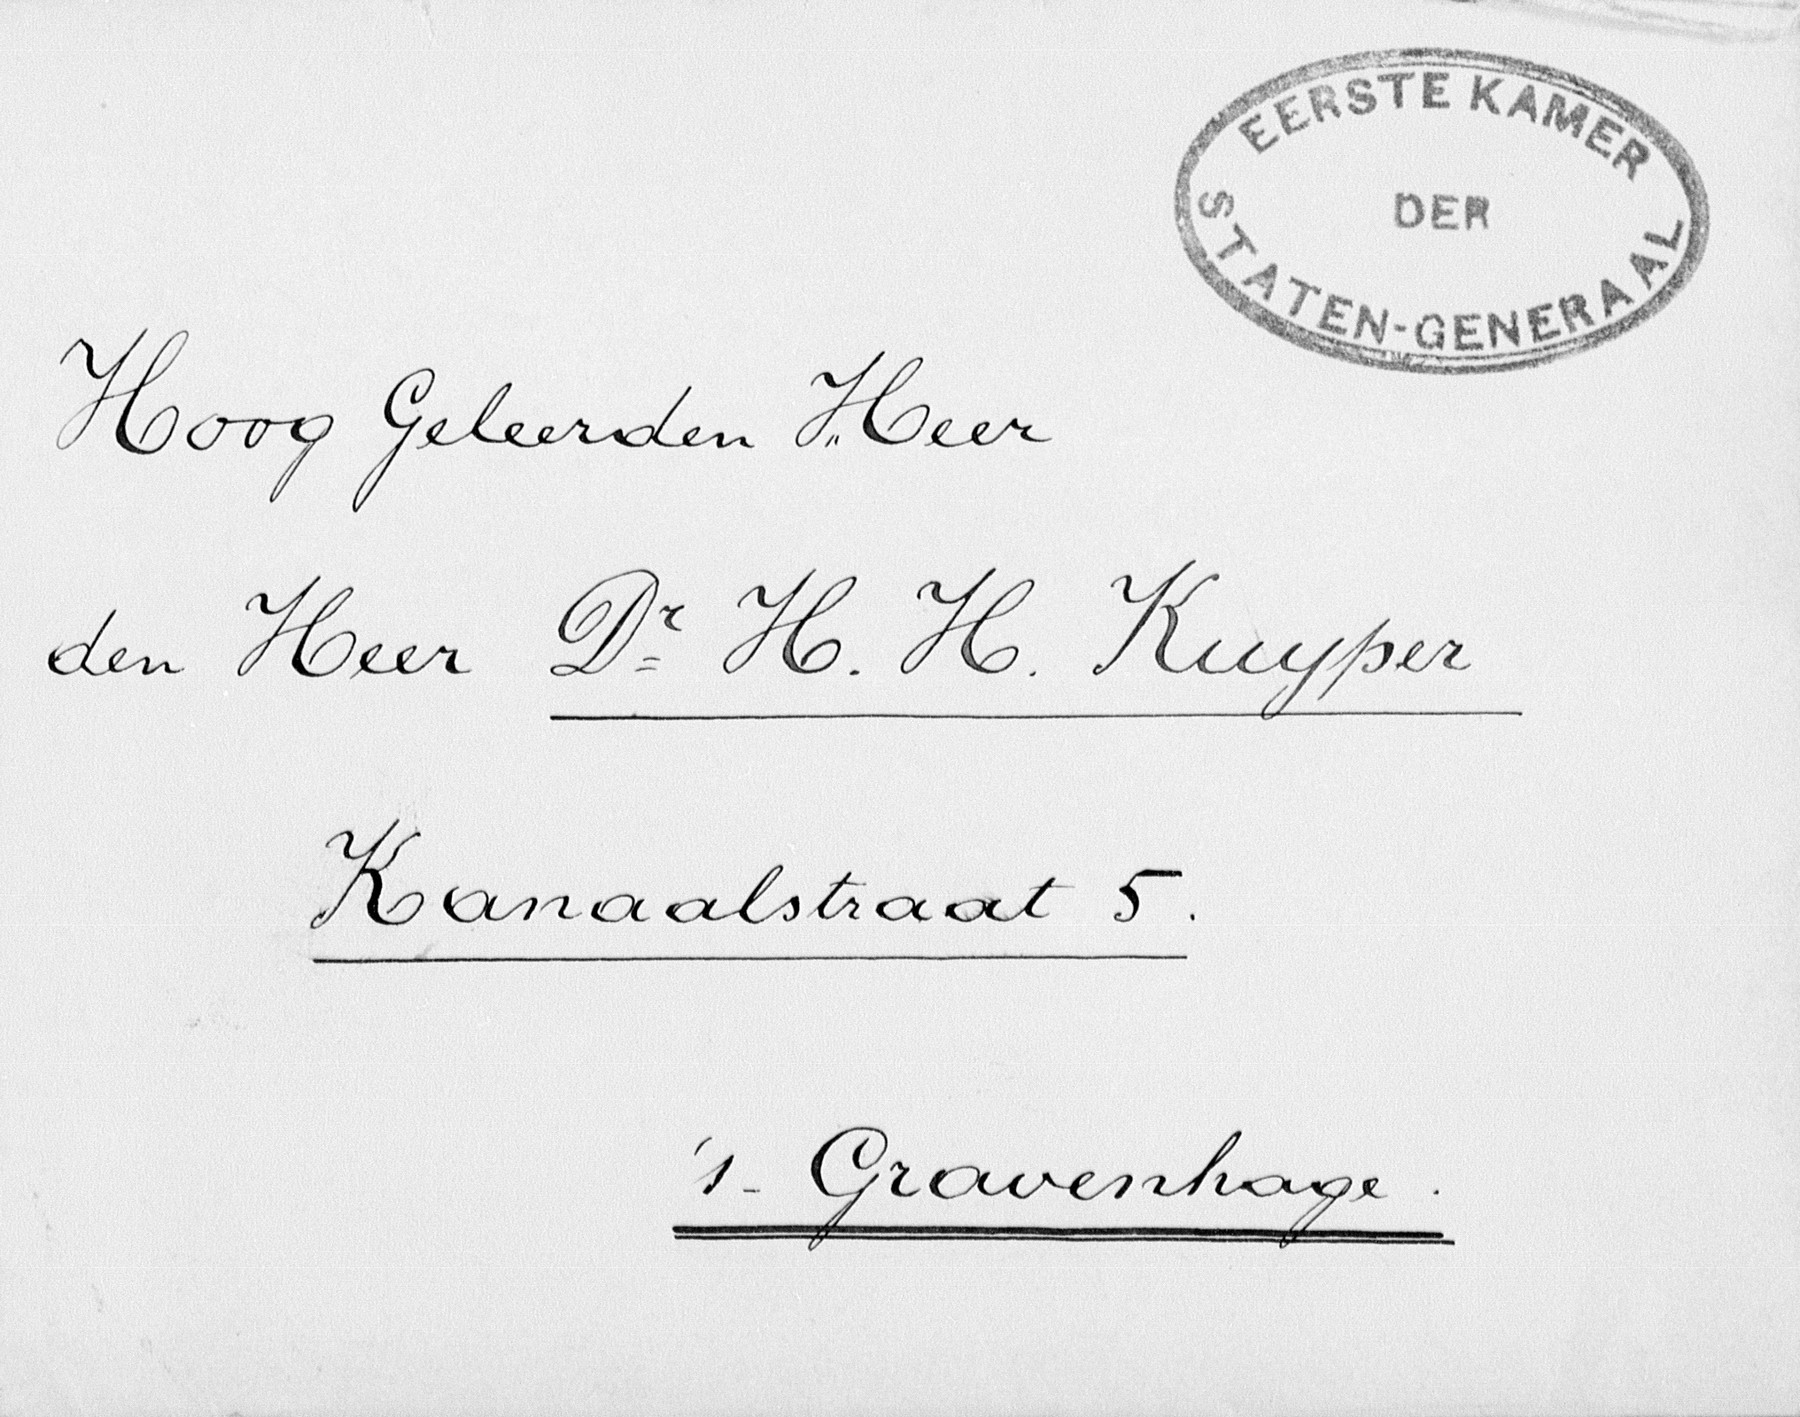 EERSTE KAMER
DER
STATEN-GENERAAL
Hoog Geleerden Heer
den Heer Dr H. H. Kuyper
Kanaalstraat 5.
's-Gravenhage.